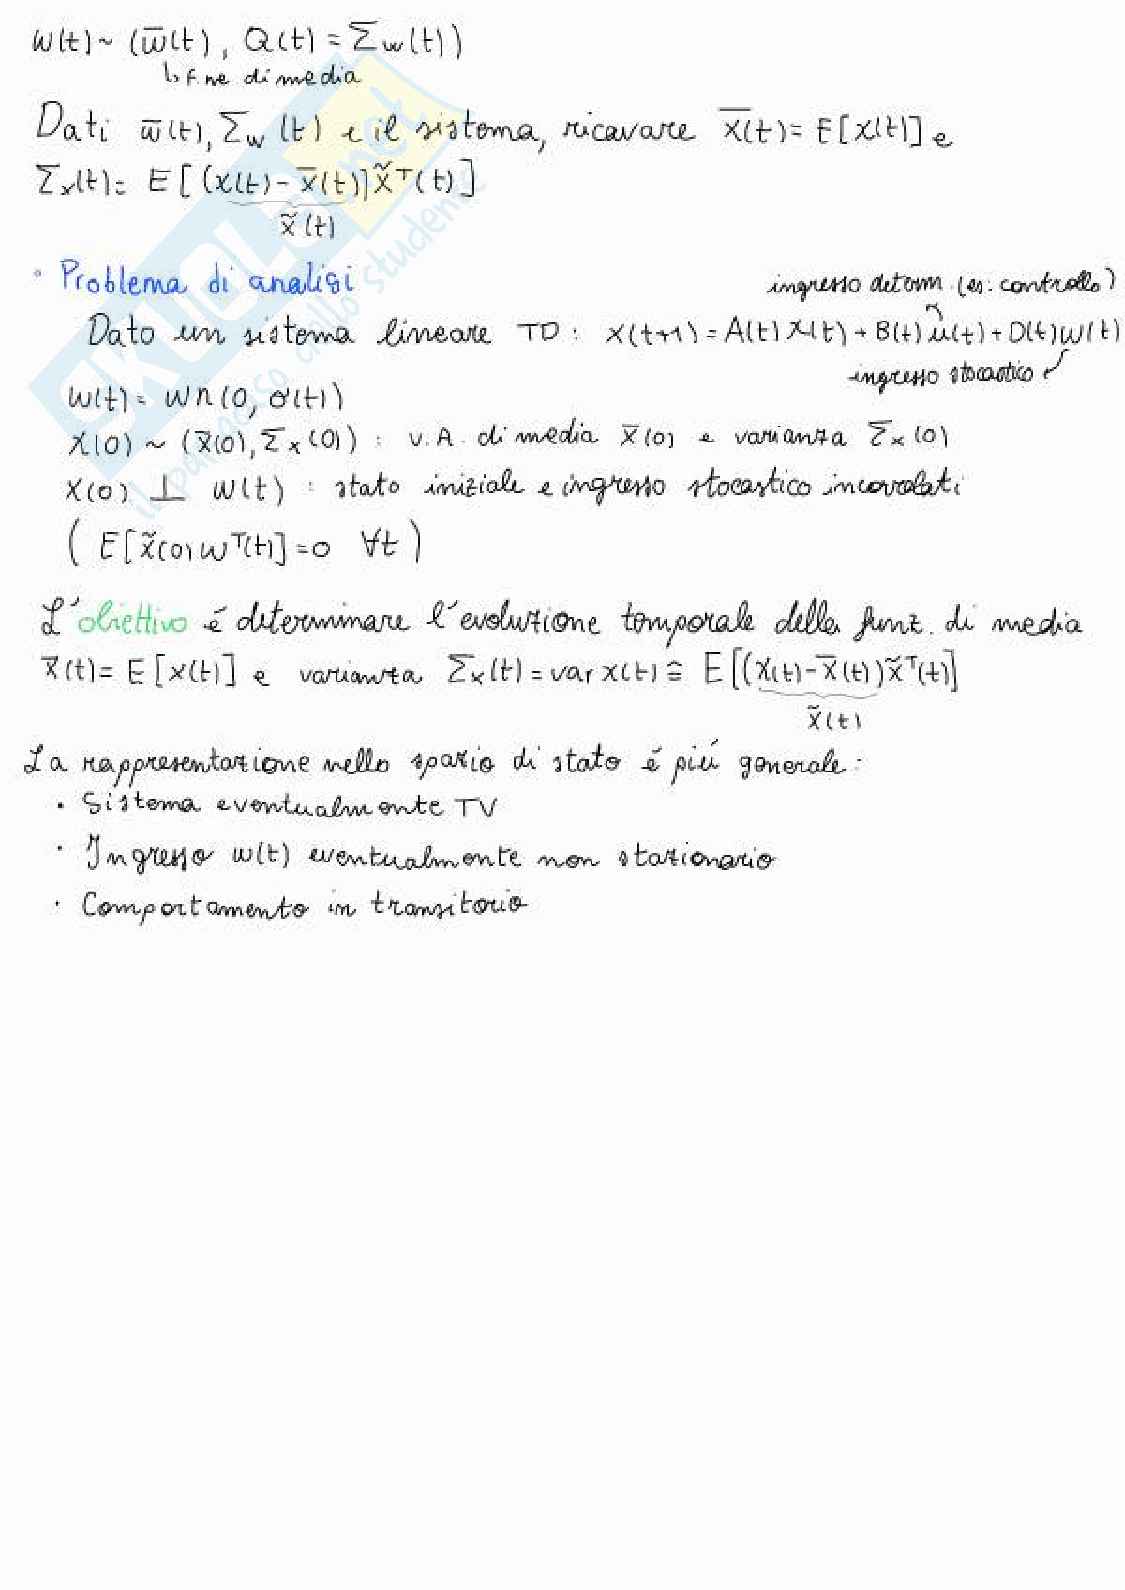 w(t) ~ (w̅(t), Q(t) = Σw(t))
↳ f.ne di media
Dati w̅(t), Σw(t) e il sistema, ricavare x̅(t) = E[x(t)] e
Σx(t) = E[(x(t) - x̅(t)]x̃ᵀ(t)]
x̃(t)
• Problema di analisi
ingresso determ. (es: controllo)
Dato un sistema lineare TD: x(t+1) = A(t)x(t) + B(t)u(t) + D(t)w(t)
ingresso stocastico
w(t) = wn(0, σ(t))
x(0) ~ (x̅(0), Σx(0)) : v.A. di media x̅(0) e varianza Σx(0)
x(0) ⊥ w(t) : stato iniziale e ingresso stocastico incorrelati
(E[x̃(0)wᵀ(t)] = 0 ∀t)
L'obiettivo é determinare l'evoluzione temporale della funz. di media
x̅(t) = E[x(t)] e varianza Σx(t) = var x(t) ≙ E[(x(t) - x̅(t))x̃ᵀ(t)]
x̃(t)
La rappresentazione nello spazio di stato é piú generale:
• Sistema eventualmente TV
• Ingresso w(t) eventualmente non stazionario
• Comportamento in transitorio
SKUOLA.net
il paradiso dello studente